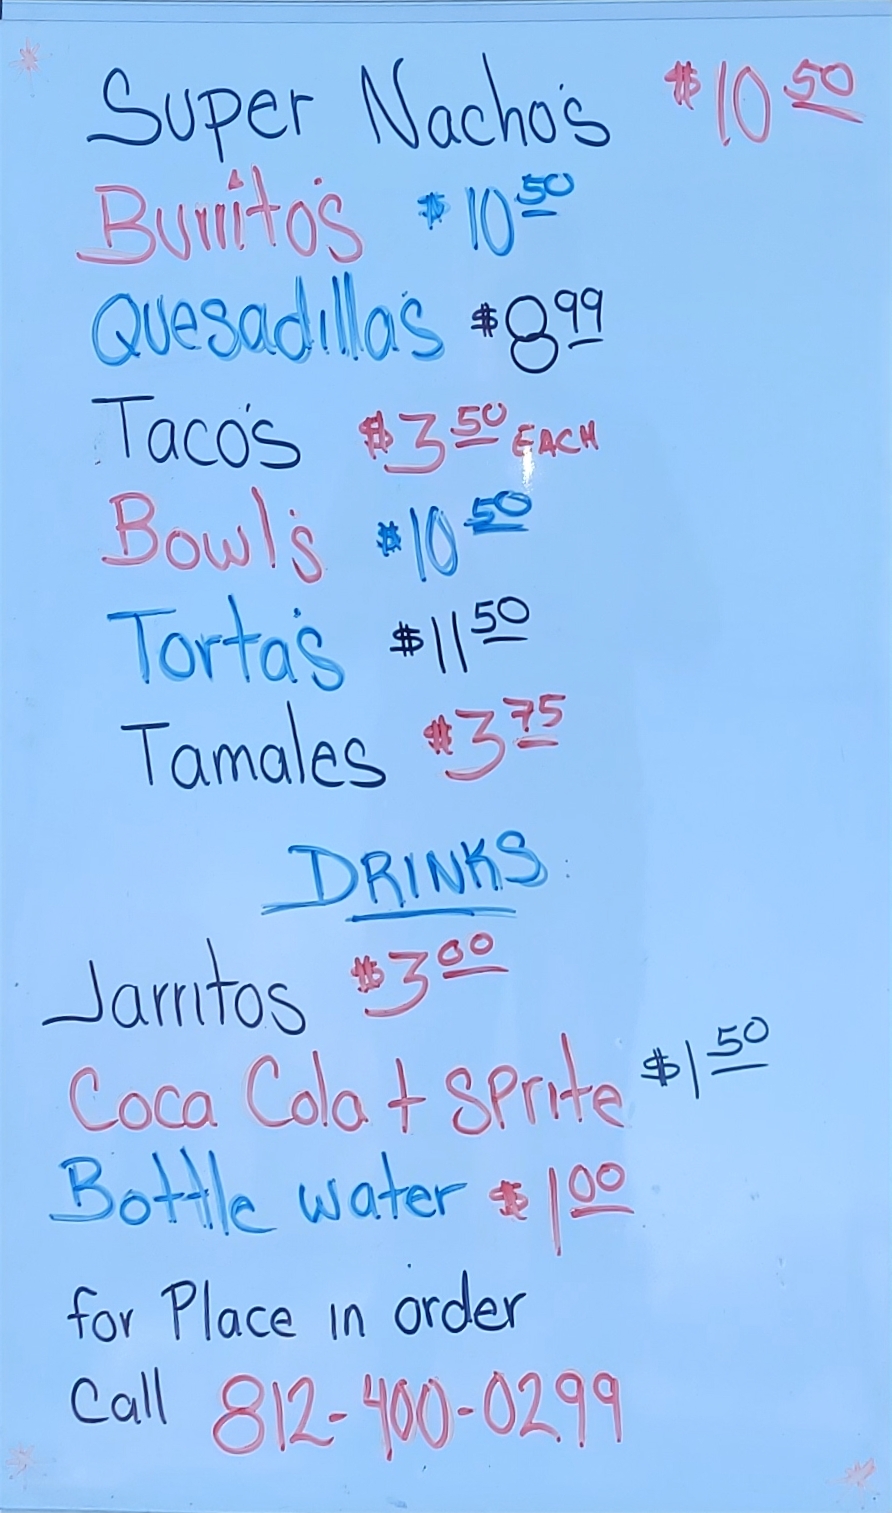 Super Nacho's $10 50
Burrito's $10 50
Quesadilla's $8 99
Taco's $3 50 EACH
Bowl's $10 50
Torta's $11 50
Tamales $3 75
DRINKS
Jarritos $3 00
Coca Cola + Sprite $1 50
Bottle water $1 00
for Place in order
Call 812-400-0299